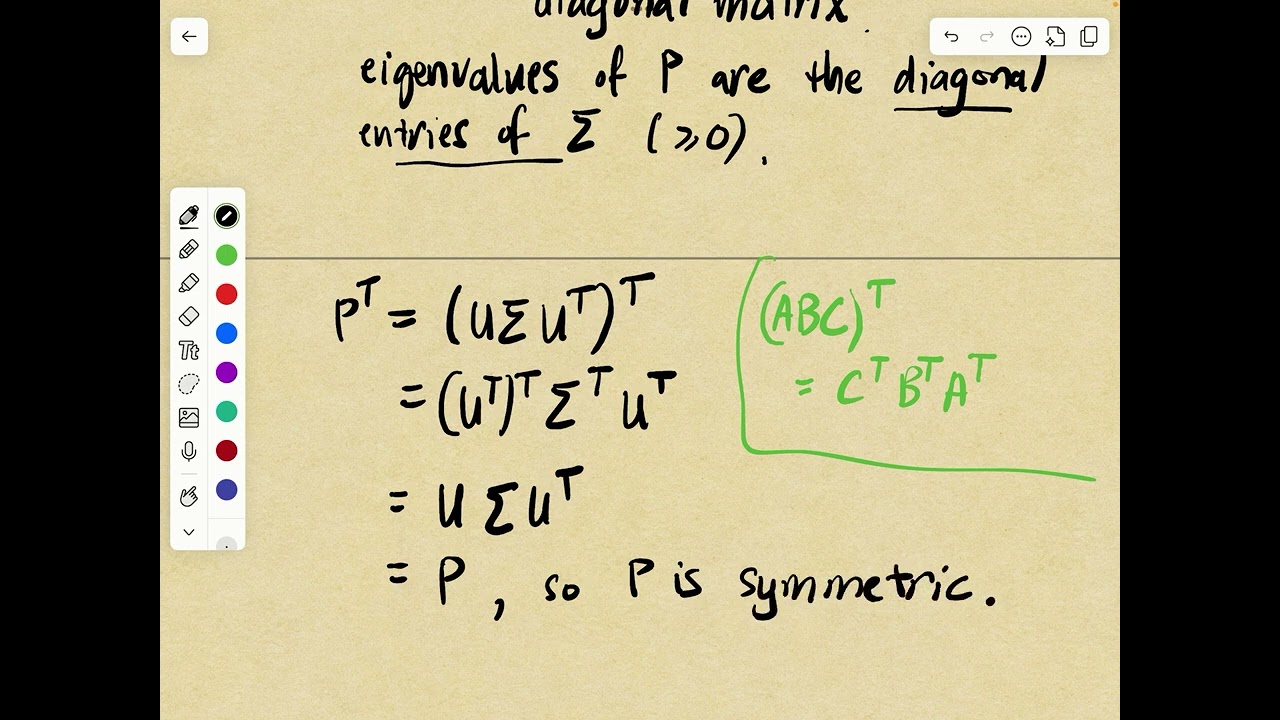 diagonal matrix.
eigenvalues of P are the diagonal
entries of Σ (⩾0).
Pᵀ = (UΣUᵀ)ᵀ
= (Uᵀ)ᵀ Σᵀ Uᵀ
= U Σ Uᵀ
= P, so P is symmetric.
(ABC)ᵀ
= Cᵀ Bᵀ Aᵀ
Tt